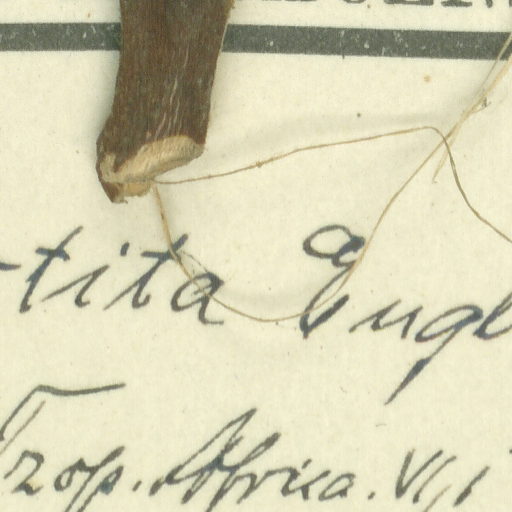 -tita Engl
Trop. Africa. VI, 1